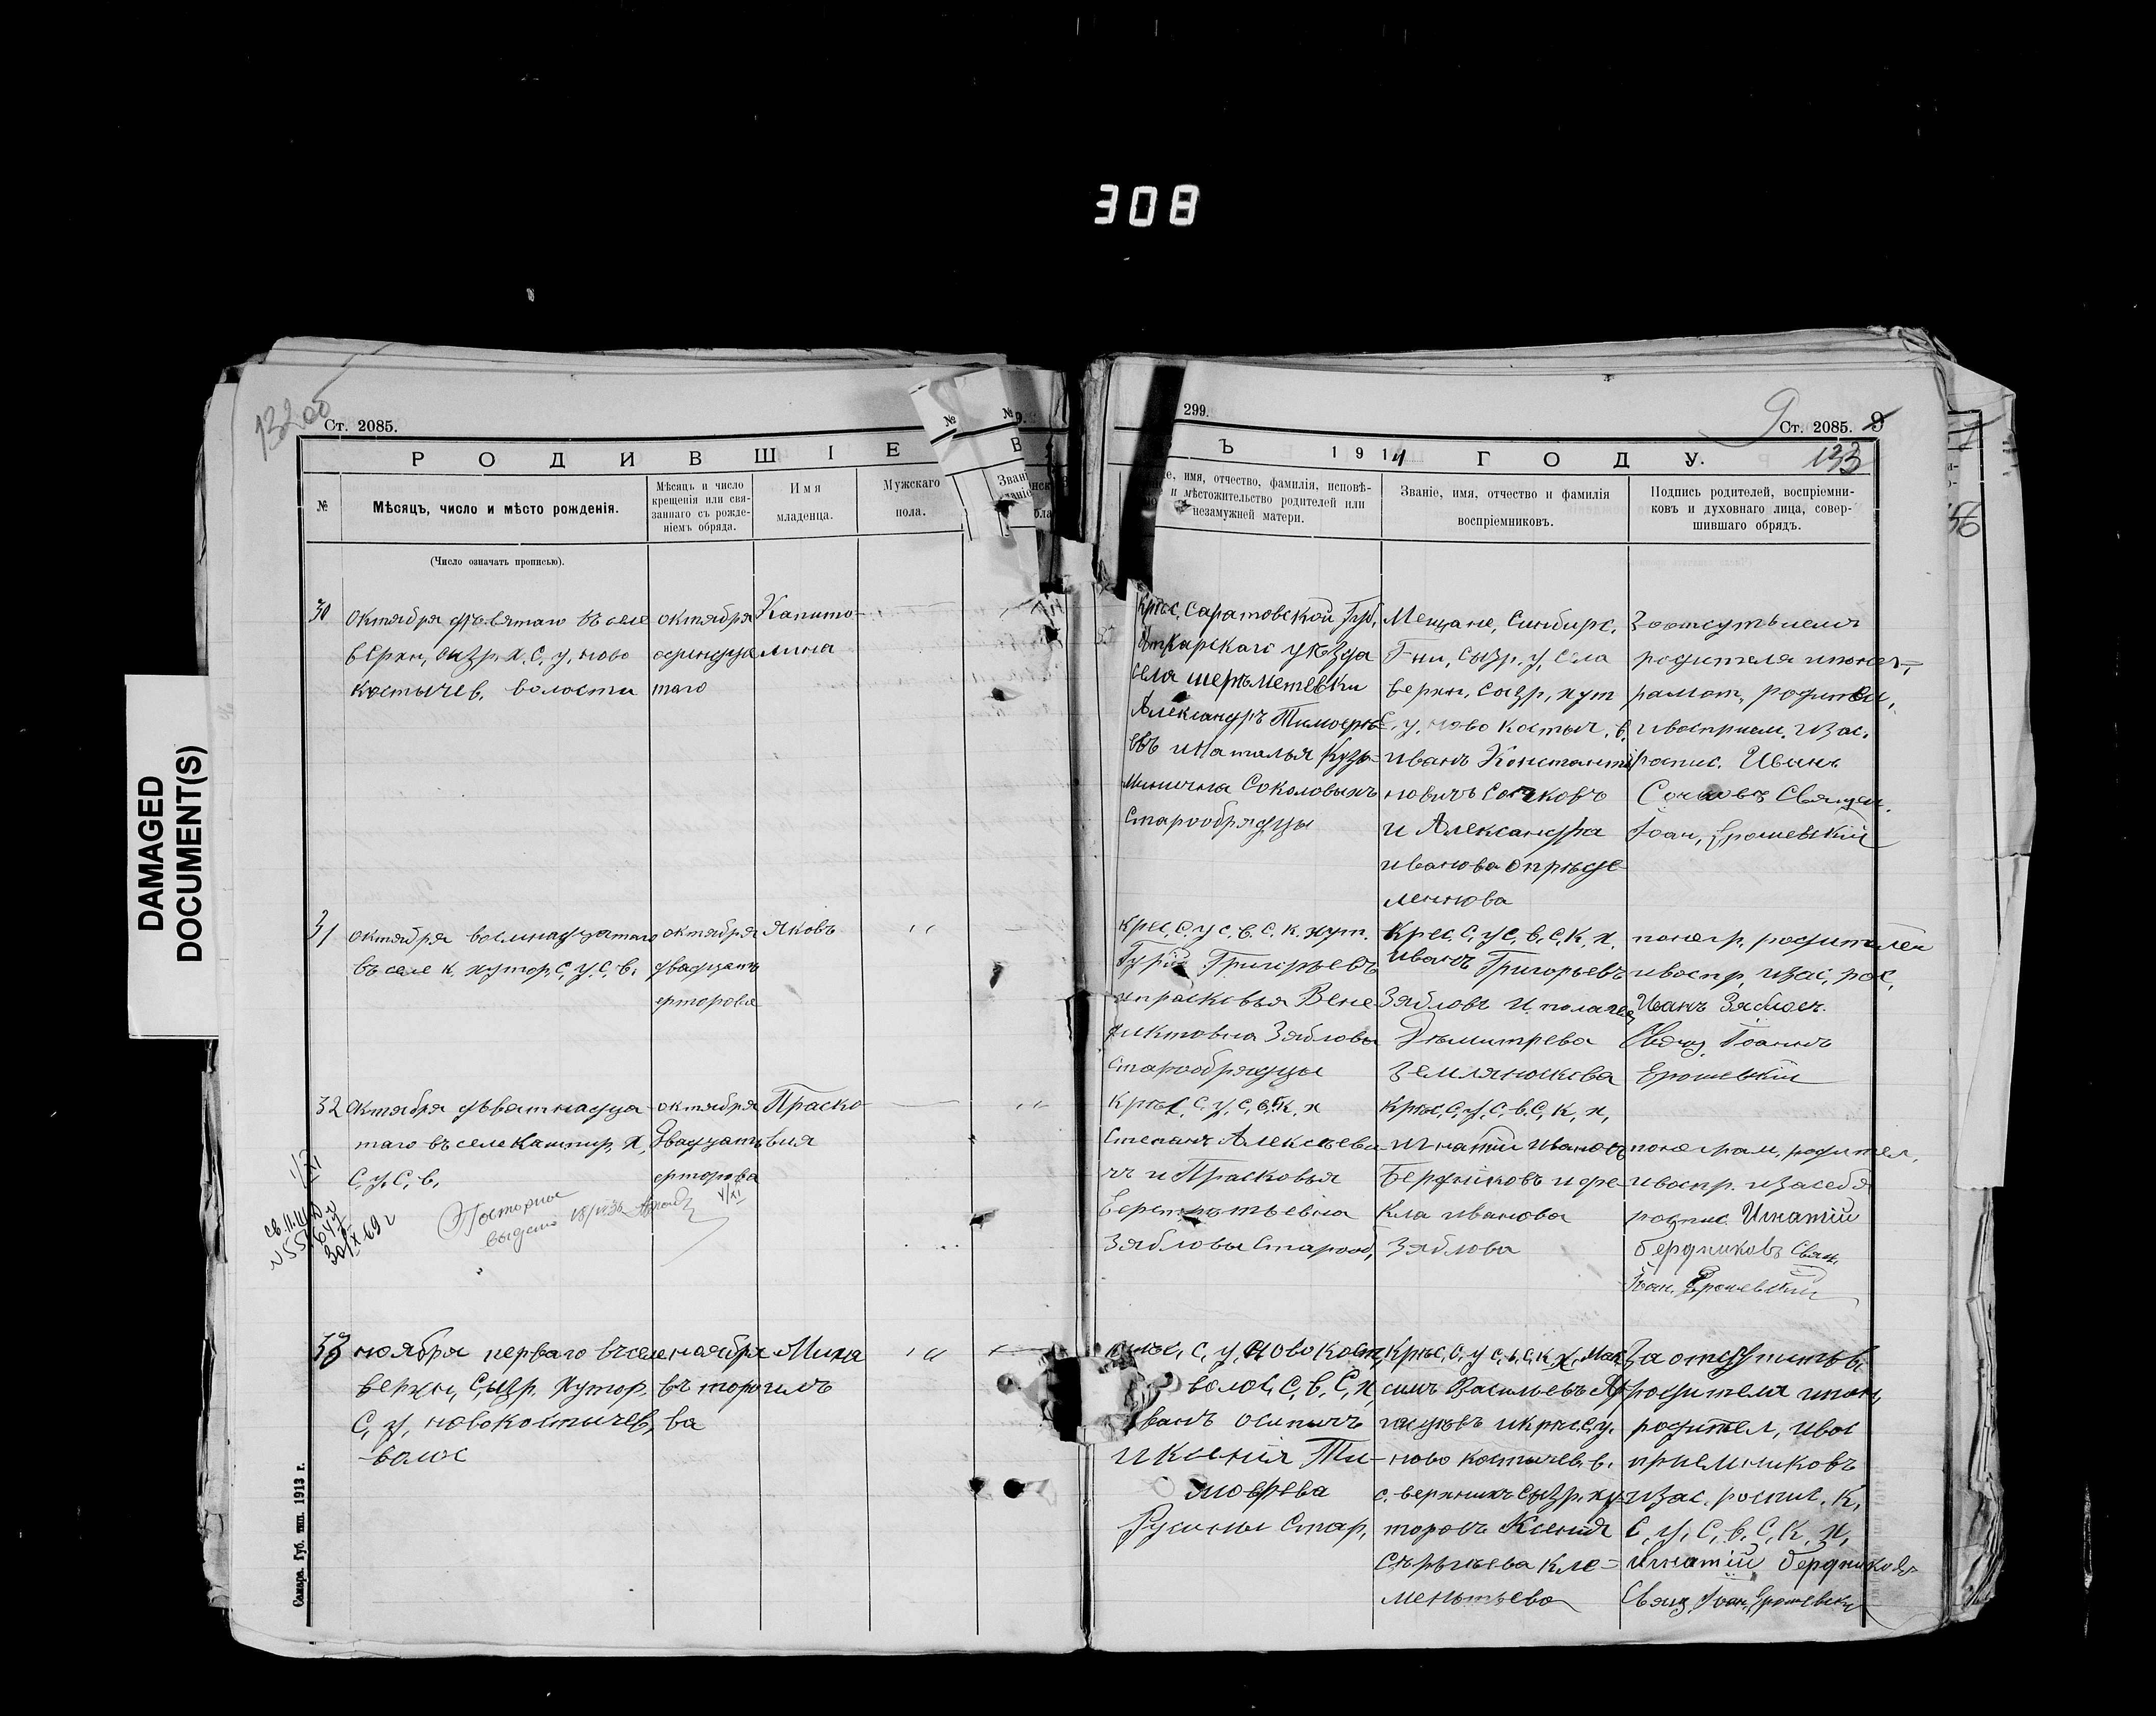 308
DAMAGED
DOCUMENT(S)
132 об
Ст. 2085.
РОДИВШІЕ
№
Мѣсяцъ, число и мѣсто рожденія.
(Число означать прописью).
Мѣсяцъ и число
крещенія или свя-
заннаго съ рожде-
ніемъ обряда.
Имя
младенца.
Мужскаго
пола.
30
октября девятаго въ селе
верхн, сызр. х. С. у, ново
костычев, волости
октября
одинадца
таго
Капито-
лина
31
октября восмнадцатаго
въ селе к. хутор, С, у. С. в.
октября
двадцать
второва
Яковъ
32
октября деватнадца
таго въ селе Кашпир, х,
С, у. С, в,
октября
двадцать
второва
Праско
вия
Повторное
выдано
33
ноября перваго въ селе
верхн, Сызр. Хутор,
С, у, новокостычев,
волос
ноября
второ
ва
Мина
илъ
Самара. Губ. тип. 1913 г.
299.
Ст. 2085.
9
133
Ъ 1914 ГОДУ.
имя, отчество, фамилія, исповѣ-
и мѣстожительство родителей или
незамужней матери.
Званіе, имя, отчество и фамилія
воспріемниковъ.
Подпись родителей, воспріемни-
ковъ и духовнаго лица, совер-
шившаго обрядъ.
Крес. Саратовской Губ,
Аткарскаго уезда
села шереметевки
Александръ Тимофе
евъ и Наталья Кузь-
минична Соколовыхъ
Старообрядцы
Мещане, Симбирс.
Гни, Сызр. у, села
верхн, сызр, хут
С. у. ново костыч. в.
Иванъ Константи
новичъ Сочковъ
и Александра
иванова Опреде-
леннова
родителя
рамот, родител,
и восприем. изас.
роспис. Иванъ
Сочковъ Священ.
Іоан, Ерошевскій
крес. С. у С. в. С. к. хут.
Гурій Григорьевъ
и прасковья Вене
диктовна Зябловы
старообрядцы
Крес. С, у С, в, С, к. х.
Иванъ Григорьевъ
Зябловъ и полагея
Дьмитрева
Землянскова
понегр. родителей
и воспр, изас, рос,
Иванъ Зябловъ.
Іоаннъ
Ерошевскій
крес, С, у, С, в, к. х
Степанъ Алексееви
чъ и Прасковья
Зябловы Старооб,
крес, С, у, С. в. С, к, х,
Игнатій Ивановъ
Бердниковъ и фе-
кла иванова
Зяблова
понеграм, родител,
и воспр. и засебя
роспис. Игнатій
бердниковъ Свящ.
Іоан. Ерошевскій
С, у, новокост,
волос, С, в, С, х,
ванъ осипичъ
и ксенія Ти-
мофева
Русины Стар,
Крес, С. у С, в, С, к х, Мак
симъ Васильевъ
и крес. С, у.
ново костычев. в.
с. верхнихъ Сызр. ху-
торовъ Ксенія
Сергеева Кле-
ментьево
За отсутств.
родителя
родител, и вос
приемниковъ
изас. роспис. к,
С, у, С, в, С, к, х,
Игнатій бердниковъ
Свящ, Іоан, Ерошевскій